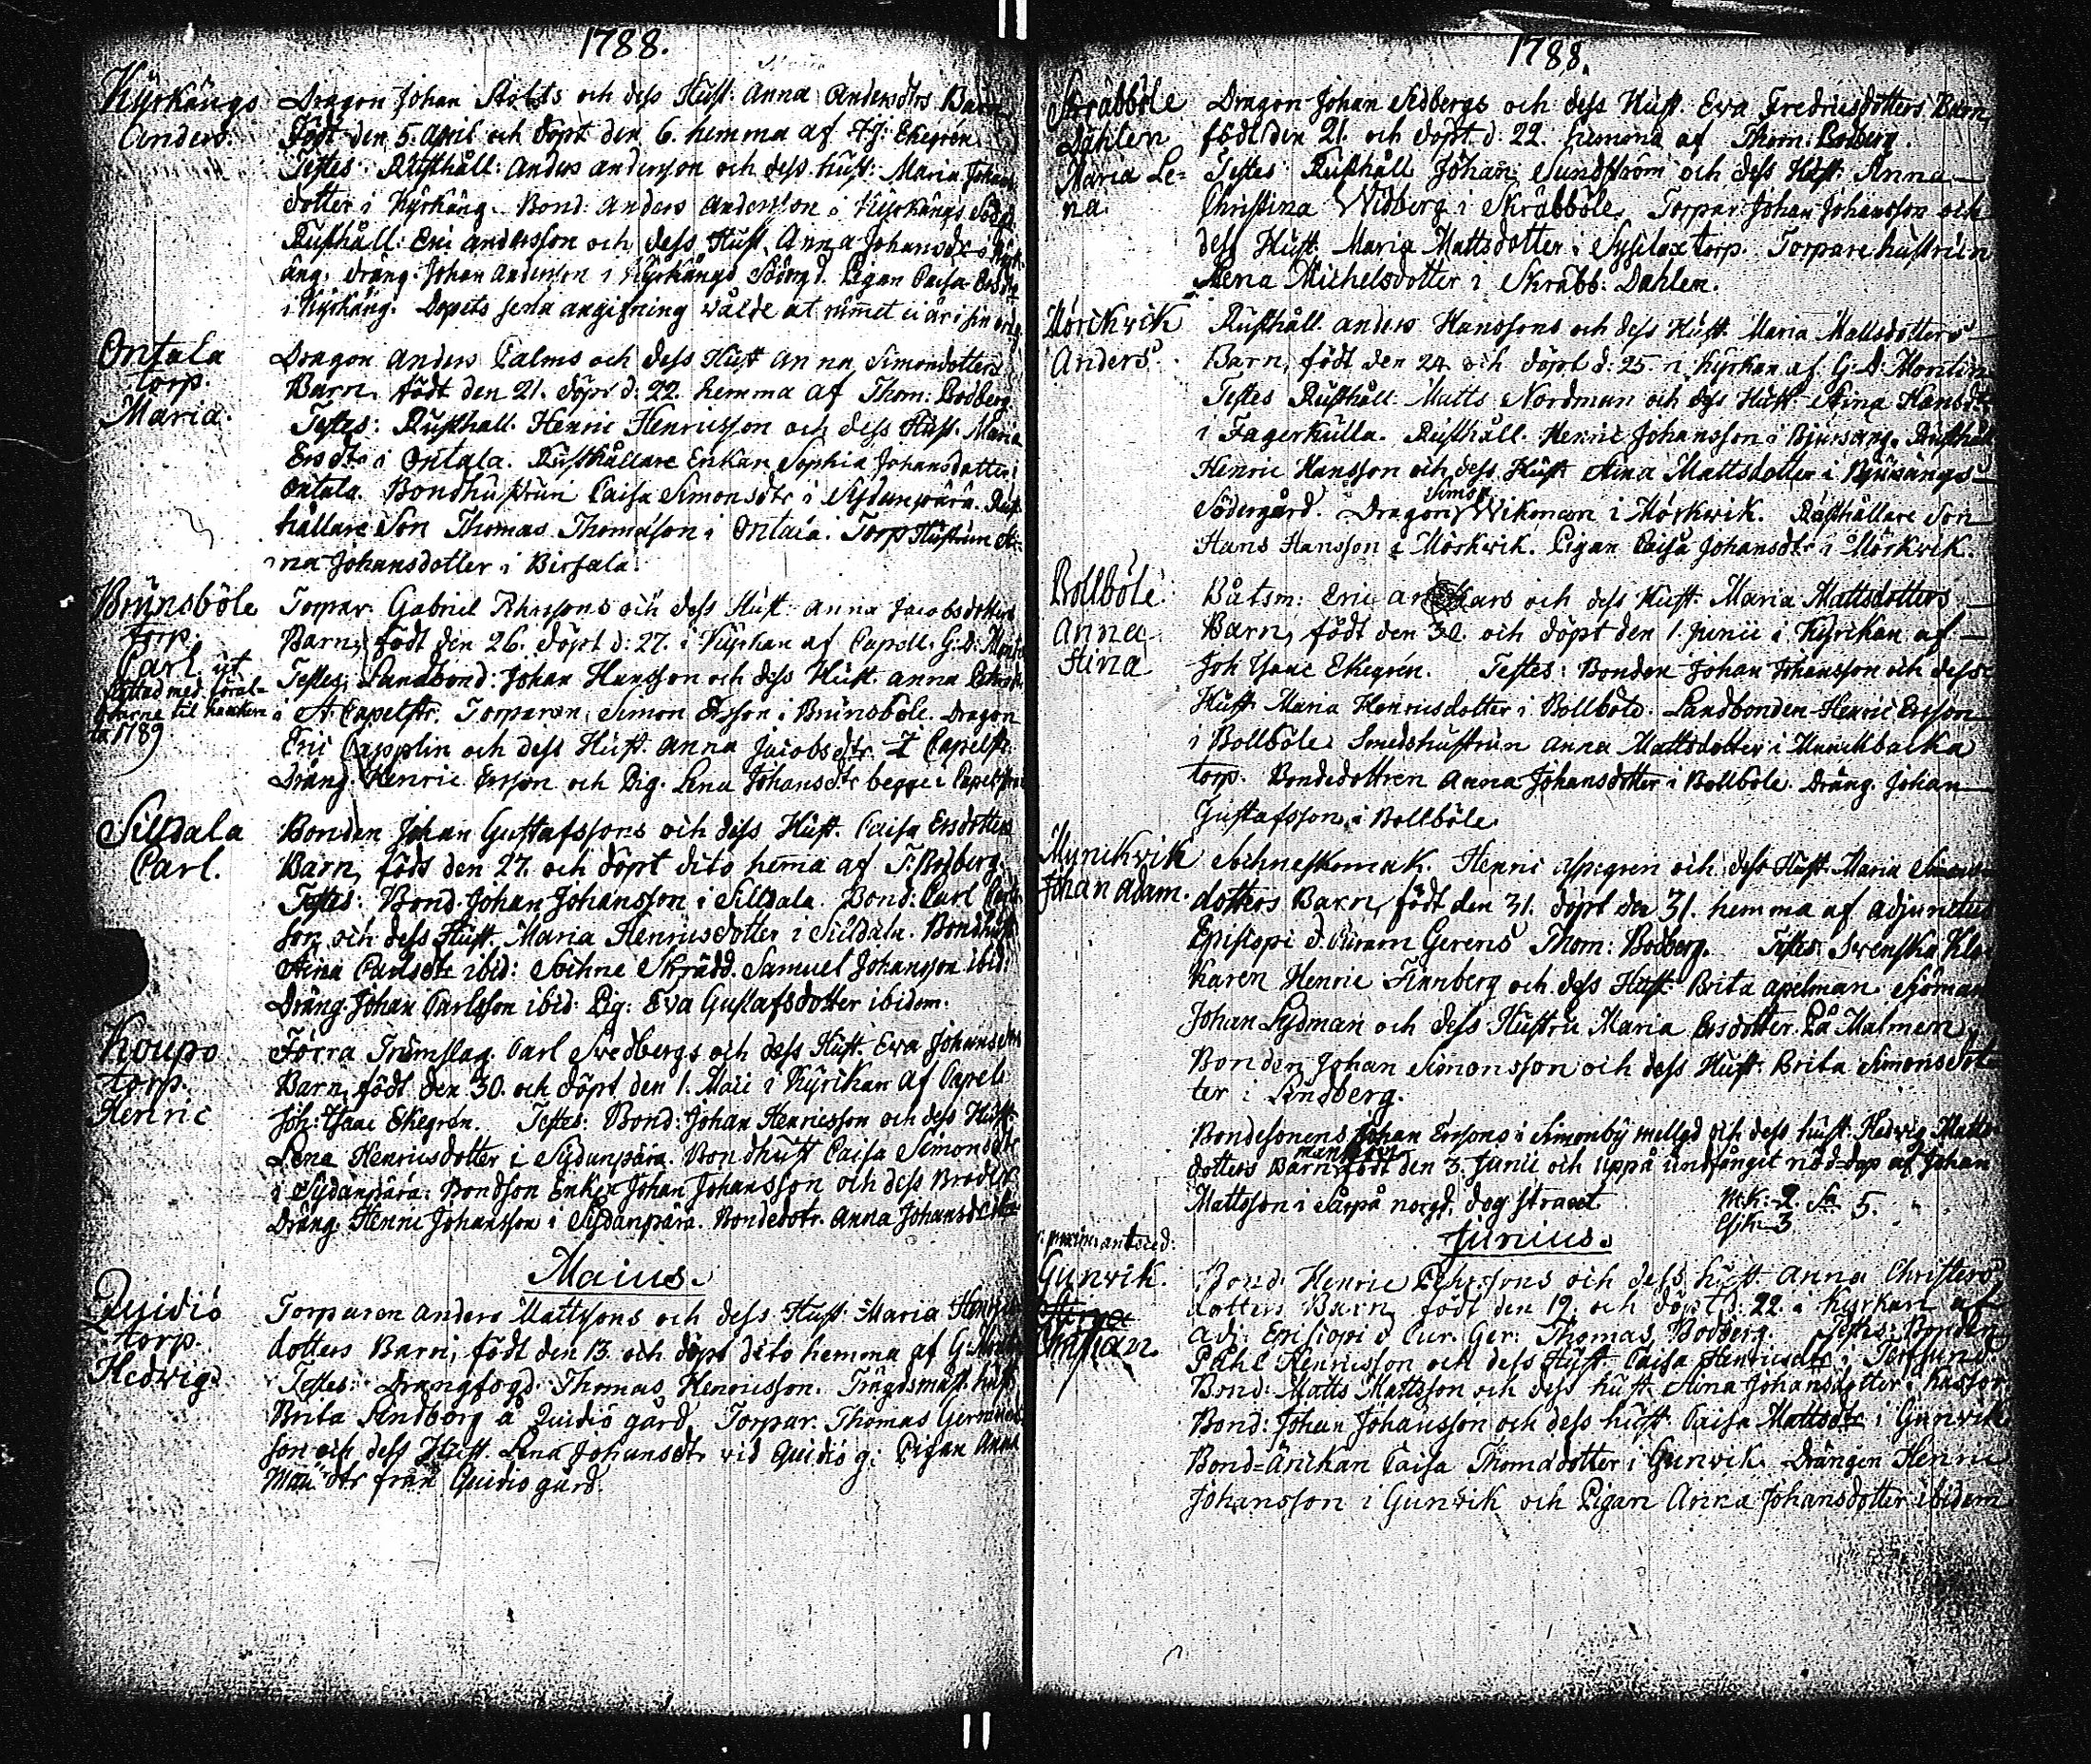 1788.
Kyrkängs Dragon Johan Stolts och dess Hust: Anna Andersdtrs Barn
Anders. Födt den 5. April och döpt den 6. hemma af Adj: Ekegrén
Testes: Rusthåll: Anders Andersson och dess hust: Maria Johans
dotter i Kyrkäng. Bond: Anders Andersson i Kyrkängs Södgd
Rusthåll: Eric Andersson och dess Hust. Anna Johansdr i Kyrk
äng. Dräng: Johan Andersson i Kyrkängs Södergd. Pigan Caisa Ersdtr
i Kyrkäng. Dopets sena angifning vålde at rummet ei är i sin ordn.
Ontala Dragon Anders Palms och dess Hust Anna Simonsdotters
torp. Barn, födt den 21. döpt d: 22. hemma af Thom: Bodberg.
Maria. Testes: Rusthåll. Henric Henricsson och dess Hust. Maria
Ersdtr i Ontala. Rusthållare Enkan Sophia Johansdotter i
Ontala. Bondhustrun Caisa Simonsdtr i Sydänpärä. Rust
hållare Son Thomas Thomasson i Ontala. Torp Hustrun
na Johansdotter i Birsala.
Brunsböle Torpar Gabriel Pehrssons och dess Hust: Anna Jacobsdotters
torp. Barn, födt den 26. döpt d: 27. i Kyrkan af Capell. G: D:
Carl Testes: Landbond: Johan Hansson och dess Hust. Anna
flyttad med föräl= i Capelstr. Torparen Simon Ersson i Brunsböle. Dragon
drarne til
1789 Eric Capplin och dess Hust. Anna Jacobsdtr Capelstr.
Dräng. Henric Ersson och Pig. Lena Johansdtr begge i Capelstrand
Silldala Bonden Johan Gustafssons och dess Hust. Caisa Ersdotters
Carl. Barn, födt den 27. och döpt dito hemma af T: Bodberg.
Testes: Bond. Johan Johansson i Silldala. Bond: Carl Carls
son och dess Hust. Maria Henricsdotter i Silldala. Bondhust
Stina Carlsdtr ibid: Sochne Skrädd. Samuel Johansson ibid:
Dräng. Johan Carlsson ibid: Pig: Eva Gustafsdotter ibidem.
Koupo Förra Trumslag. Carl Svedbergs och dess Hust. Eva Johansdtrs
torp. Barn, födt den 30. och döpt den 1. Maii i Kyrkan af Capell
Henric Joh: Isaac Ekegrén. Testes: Bond: Johan Henricsson och dess Hust
Lena Henricsdotter i Sydänpärä. Bondhust Caisa Simonsdtr
i Sydänpärä. Bondson Enkl. Johan Johansson och dess Broder
Dräng. Henric Johansson i Sydänpärä. Bondedotr. Anna Johansdtr
Maius.
Quidiö Torparen Anders Mattssons och dess Hust. Maria Henrics
torp. dotters Barn, födt den 13. och döpt dito hemma af G:
Hedvig. Testes: Drängfogd: Thomas Henricsson. Trägdsmäst: hust
Brita Lindborg å Quidiö gård. Torpar. Thomas
son och dess Hust. Lena Johansdtr vid Quidiö g: Pigan Anna
dtr från Quidiö gård.
1788.
Skräbböle Dragon Johan Sedbergs och dess Hust. Eva Fredricsdotters Barn,
Dahlen födt den 21. och döpt d: 22. hemma af Thom: Bodberg.
Maria Le= Testes: Rusthåll Johan Sundström och dess Hust. Anna
na Christina Widberg i Skräbböle. Torpar: Johan Johansson och
dess Hust. Maria Mattsdotter i Sysilax torp. Torpare hustrun
Lena Michelsdotter i Skräbb: Dahlen.
Mörkvik Rusthåll. Anders Hanssons och dess Hust. Maria Mattsdotters
Anders. Barn, födt den 24 och döpt d: 25 i Kyrkan af G: D: Montin
Testes Rusthåll: Matts Nordman och dess Hust: Stina Hansdtr
i Fagerkulla. Rusthåll. Henric Johansson i Bjursäng. Rusthåll
Henric Hansson och dess Hust Stina Mattsdotter i Bjursängs
Södergård. Dragon Simon Wikman i Mörkvik. Rusthållare Son
Hans Hansson i Mörkvik. Pigan Caisa Johansdtr i Mörkvik.
Bollböle Båtsm: Eric och dess Hust. Maria Mattsdotters
Anna Barn, födt den 30. och döpt den 1. Junii i Kyrkan af
Stina Joh Isaac Ekegrén. Testes: Bonden Johan Johansson och dess
Hust. Maria Henricsdotter i Bollböle. Landbonden Henric Ersson
i Bollböle. Smedshustrun Anna Mattsdotter i Munckbacka
torp. Bondedottren Anna Johansdotter i Bollböle. Dräng. Johan
Gustafsson i Bollböle.
Munckvik Sochneskomak. Henric Aspegren och dess Hust. Maria Simons
Johan Adam. dotters Barn, födt den 31. döpt den 31. hemma af Adjunctus
Episcopi d. Curam Gerens Thom: Bodberg. Testes: Svenska Klo
karen Henric Finnberg och dess Hust: Brita Apelman Sjöman
Johan Lydman och dess Hustru Maria Ersdotter På Malmen,
Bonden Johan Simonsson och dess Hust. Brita Simonsdot
ter i Lindberg.
Bondesonens Johan Erssons i Simonby mellgd och dess hust. Hedvig Matts
dotters Barn mankön födt den 3. Junii och uppå undfångit nöd-dop af Johan
Mattsson i Sarpå norgd. dog straxt. M:K: 2. Sa 5.
Q:K: 3
Junius.
Gunvik. Bond Henric Pehrssons och dess hust Anna Christers
dotters Barn födt den 19. och döpt d: 22. i Kyrkan af
Christian. Adj: Episcopi d Cur: Ger: Thomas Bodberg. Testes: Bonden
Påhl Henricsson och dess Hust. Caisa Henricsdtr i Torsund.
Bond: Matts Mattsson och dess hust. Stina Johansdotter i
Bond: Johan Johansson och dess hust. Caisa Mattsdtr i Gunvik
Bond=Änckan Caisa Thomasdotter i Gunvik. Drängen Henric
Johansson i Gunvik och Pigan Anna Johansdotter ibidem